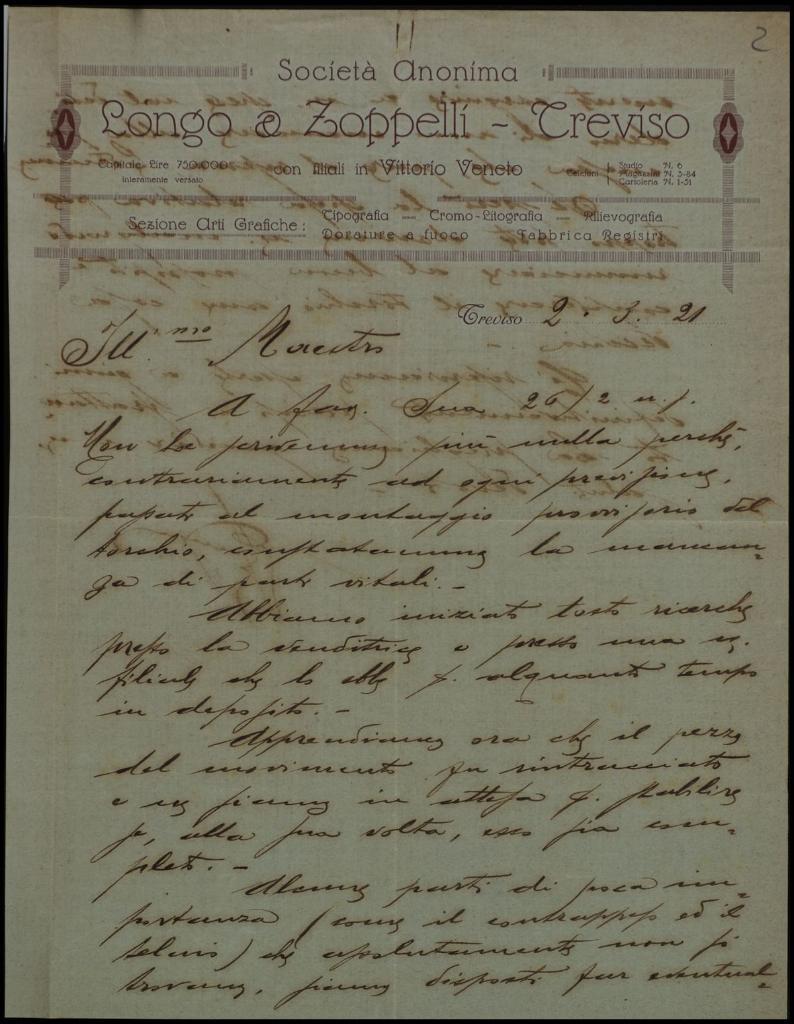 2
Società Anonima
Longo & Zoppelli - Treviso
Capitale Lire 750.000
interamente versato
con filiali in Vittorio Veneto
Telefoni
Studio N. 6
Magazzini N. 3-84
Cartoleria N. 1-51
Sezione Arti Grafiche:
Tipografia — Cromo-Litografia — Rilievografia
Dorature a fuoco Fabbrica Registri
Treviso 2. 3. 21
Ill.mo Maestro
A fav. Sua 26/2 u. s.
Non Le scrivemmo più nulla perchè,
contrariamente ad ogni previsione,
passati al montaggio provvisorio del
torchio, constatammo la mancan=
za di parti vitali. -
Abbiamo iniziato tosto ricerche
presso la venditrice e presso una ns.
filiale che lo ebbe p. alquanto tempo
in deposito. -
Apprendiamo ora che il pezzo
del movimento fu rintracciato
e ne siamo in attesa p. stabilire
se, alla sua volta, esso sia com=
pleto. -
Alcune parti di poca im=
portanza (come il contrappeso ed il
telaio) che assolutamente non si
trovano, siamo disposti far eventual=